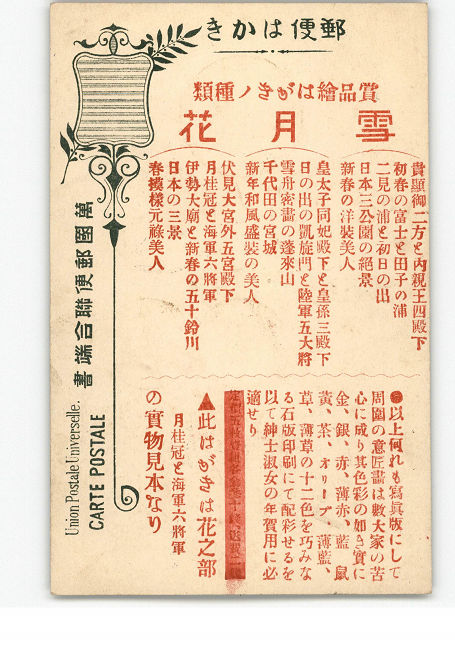 郵便はかき
賞品繪はがきノ種類
雪月花
貴顯御二方と內親王四殿下
初春の富士と田子の浦
二見の浦と初日の出
日本三公園の絶景
新春の洋裝美人
皇太子同妃殿下と皇孫三殿下
日の出の凱旋門と陸軍五大將
雪舟密畵の蓬來山
千代田の宮城
新年和風盛裝の美人
伏見大宮外五宮殿下
月桂冠と海軍六將軍
伊勢大廟と新春の五十鈴川
日本の三景
春模樣元祿美人
●以上何れも寫眞版にして
周圍の意匠畵は數大家の苦
心に成り其色彩の如き實に
金、銀、赤、薄赤、藍、鼠
黃、茶、オリーブ、薄藍、
草、薄草の十二色を巧みな
る石版印刷にて配彩せるを
以て紳士淑女の年賀用に必
適せり
▲此はがきは花之部
月桂冠と海軍六將軍
の實物見本なり
萬國郵便聯合端書
Union Postale Universelle.
CARTE POSTALE